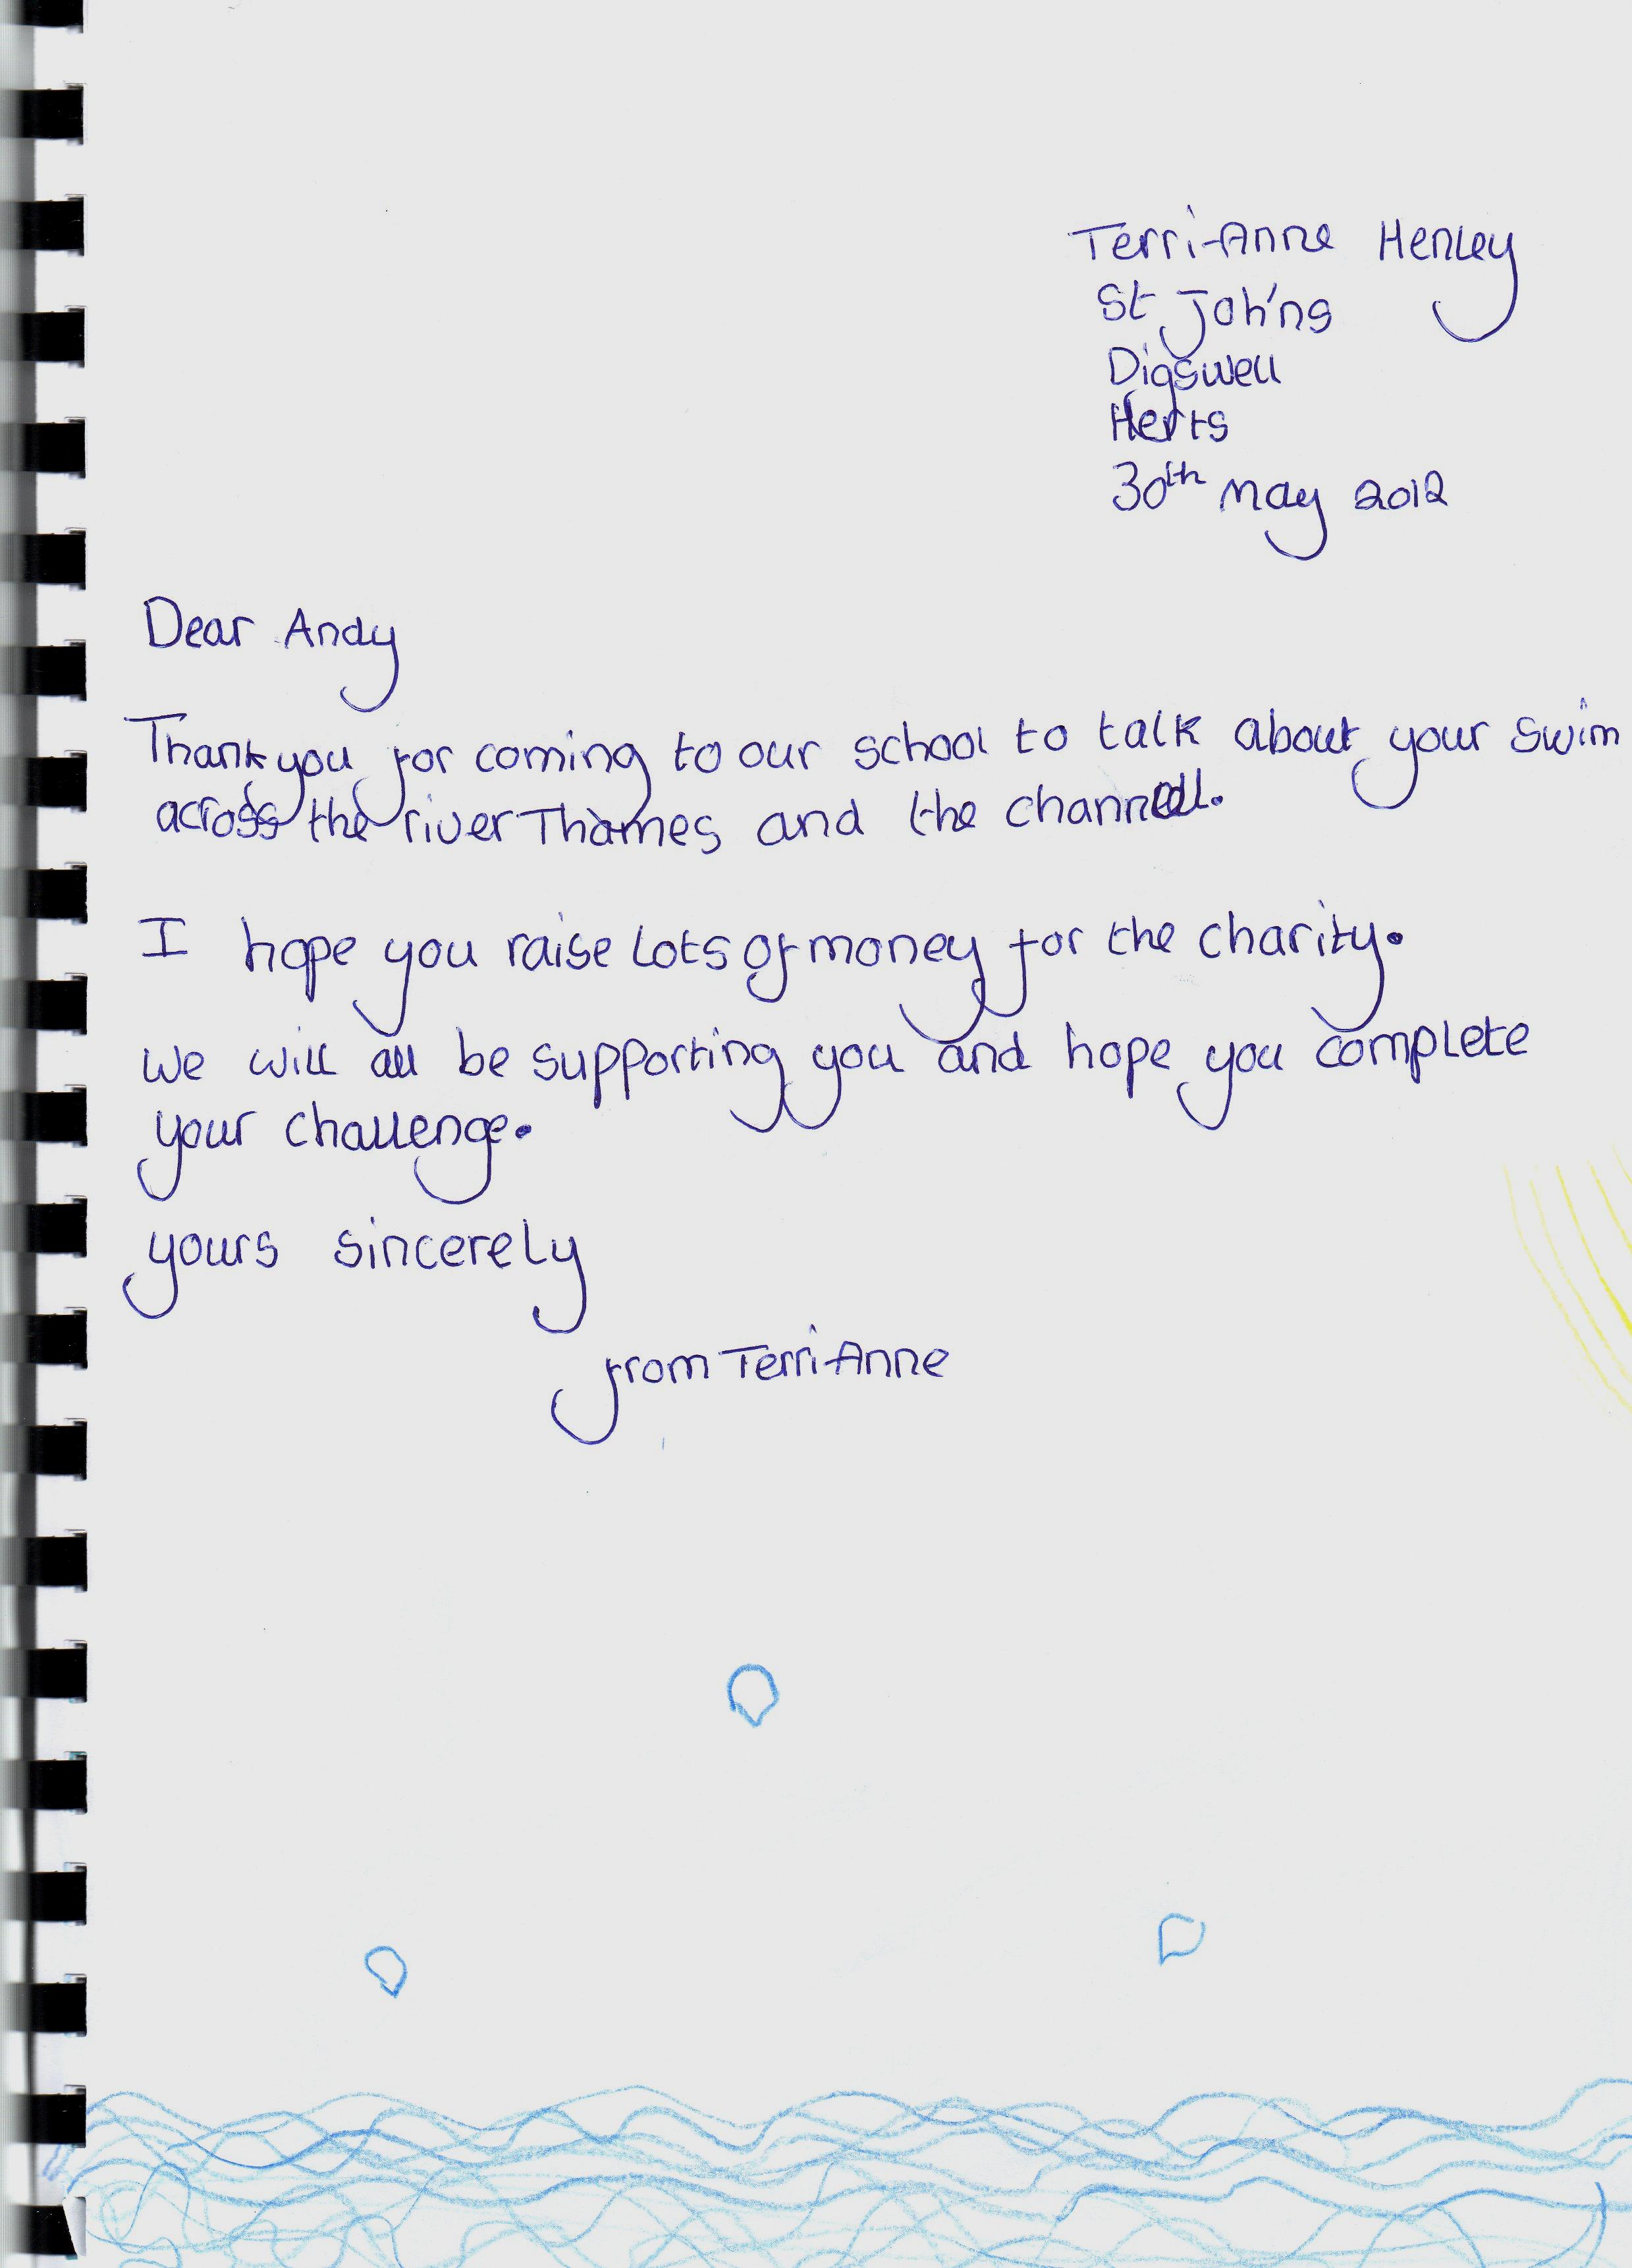 Terri-Anne Henley
St Joh'ns
Digswell
Herts
30th May 2012
Dear Andy
Thank you for coming to our school to talk about your swim
across the river Thames and the channel.
I hope you raise lots of money for the charity.
we will all be supporting you and hope you complete
your challenge.
yours sincerely
from Terri-Anne